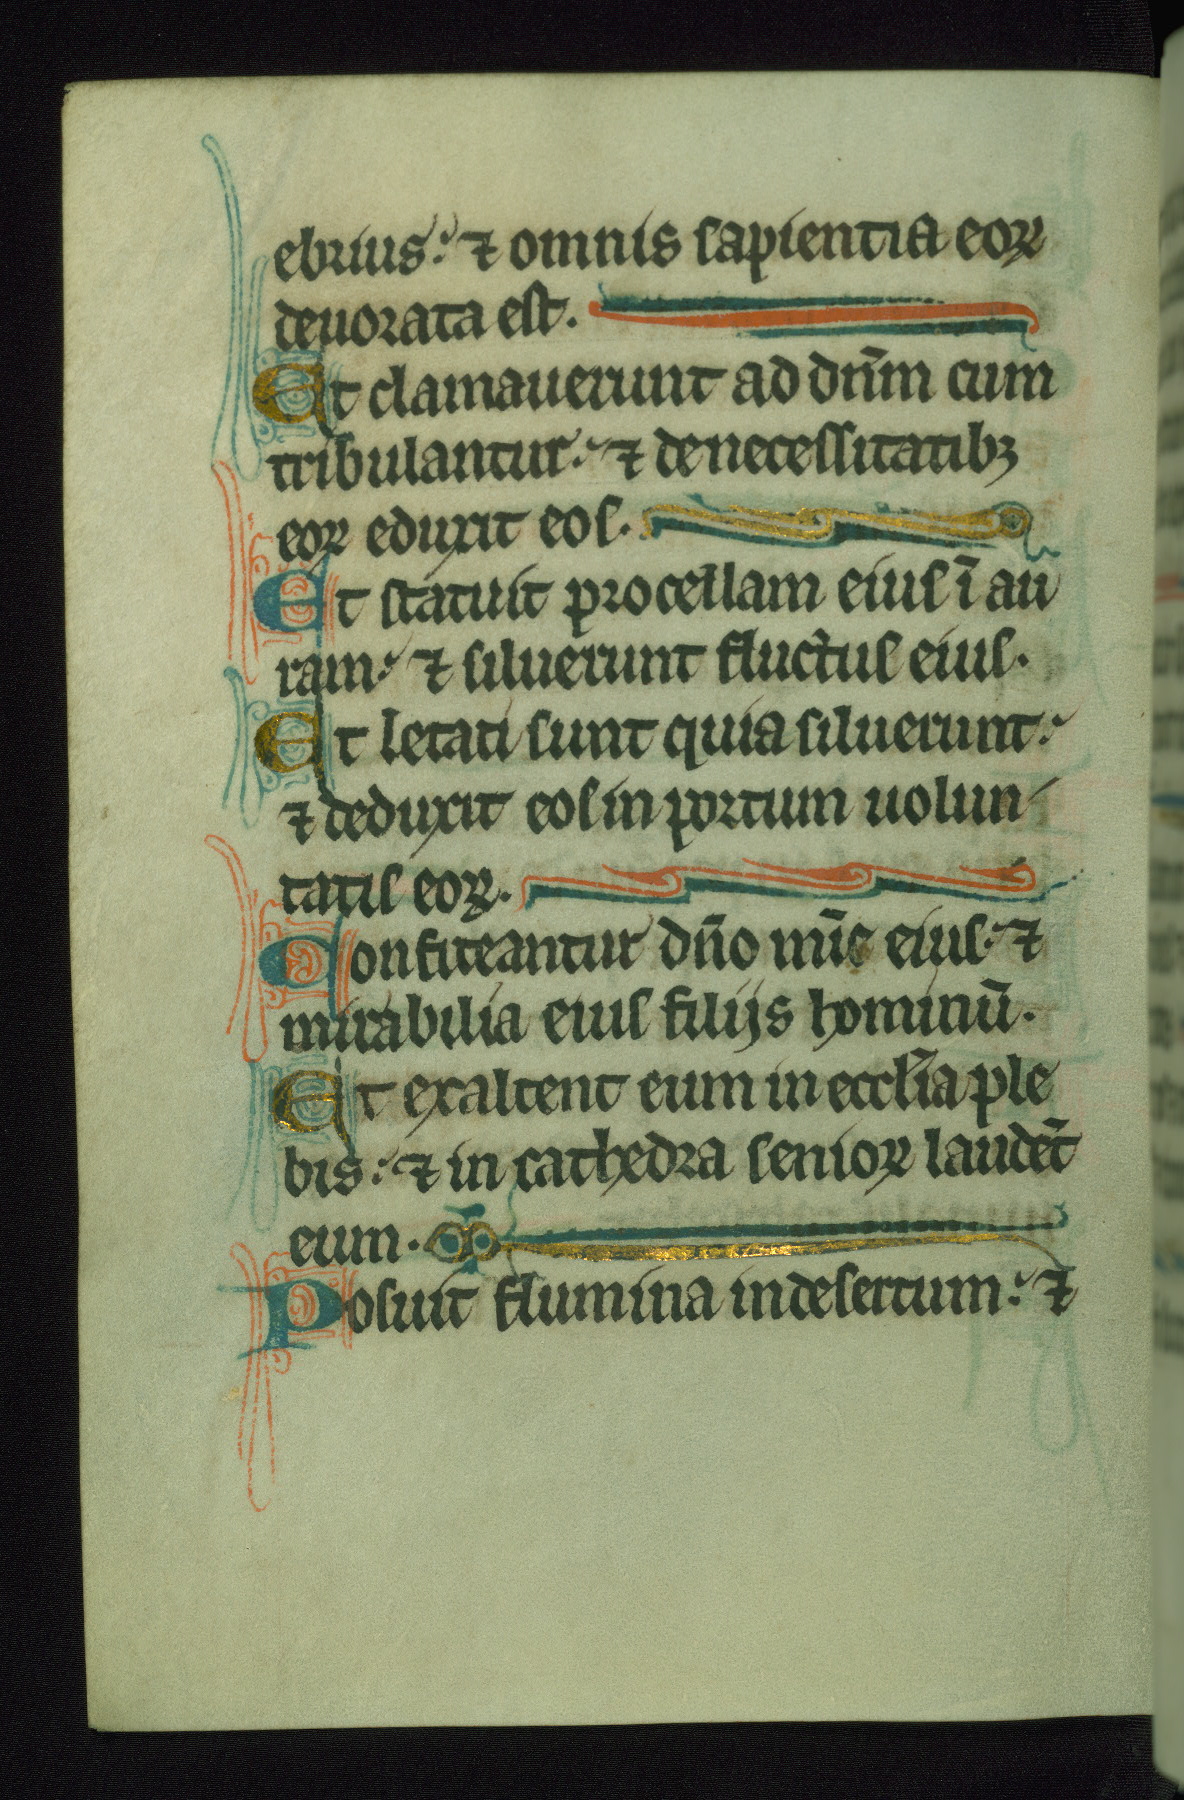 ebrius: ⁊ omnis sapientia eoꝝ
deuorata est.
Et clamauerunt ad dn̄m cum
tribulantur: ⁊ de necessitatibꝫ
eoꝝ eduxit eos.
Et statuit procellam eius ī au
ram: ⁊ siluerunt fluctus eius.
Et letati sunt quia siluerunt:
⁊ deduxit eos in portum uolun
tatis eoꝝ.
Confiteantur dn̄o mīe eius: ⁊
mirabilia eius filijs hominū.
Et exaltent eum in eccl̄ia ple
bis: ⁊ in cathedra senioꝝ laudēt
eum.
Posuit flumina in desertum: ⁊